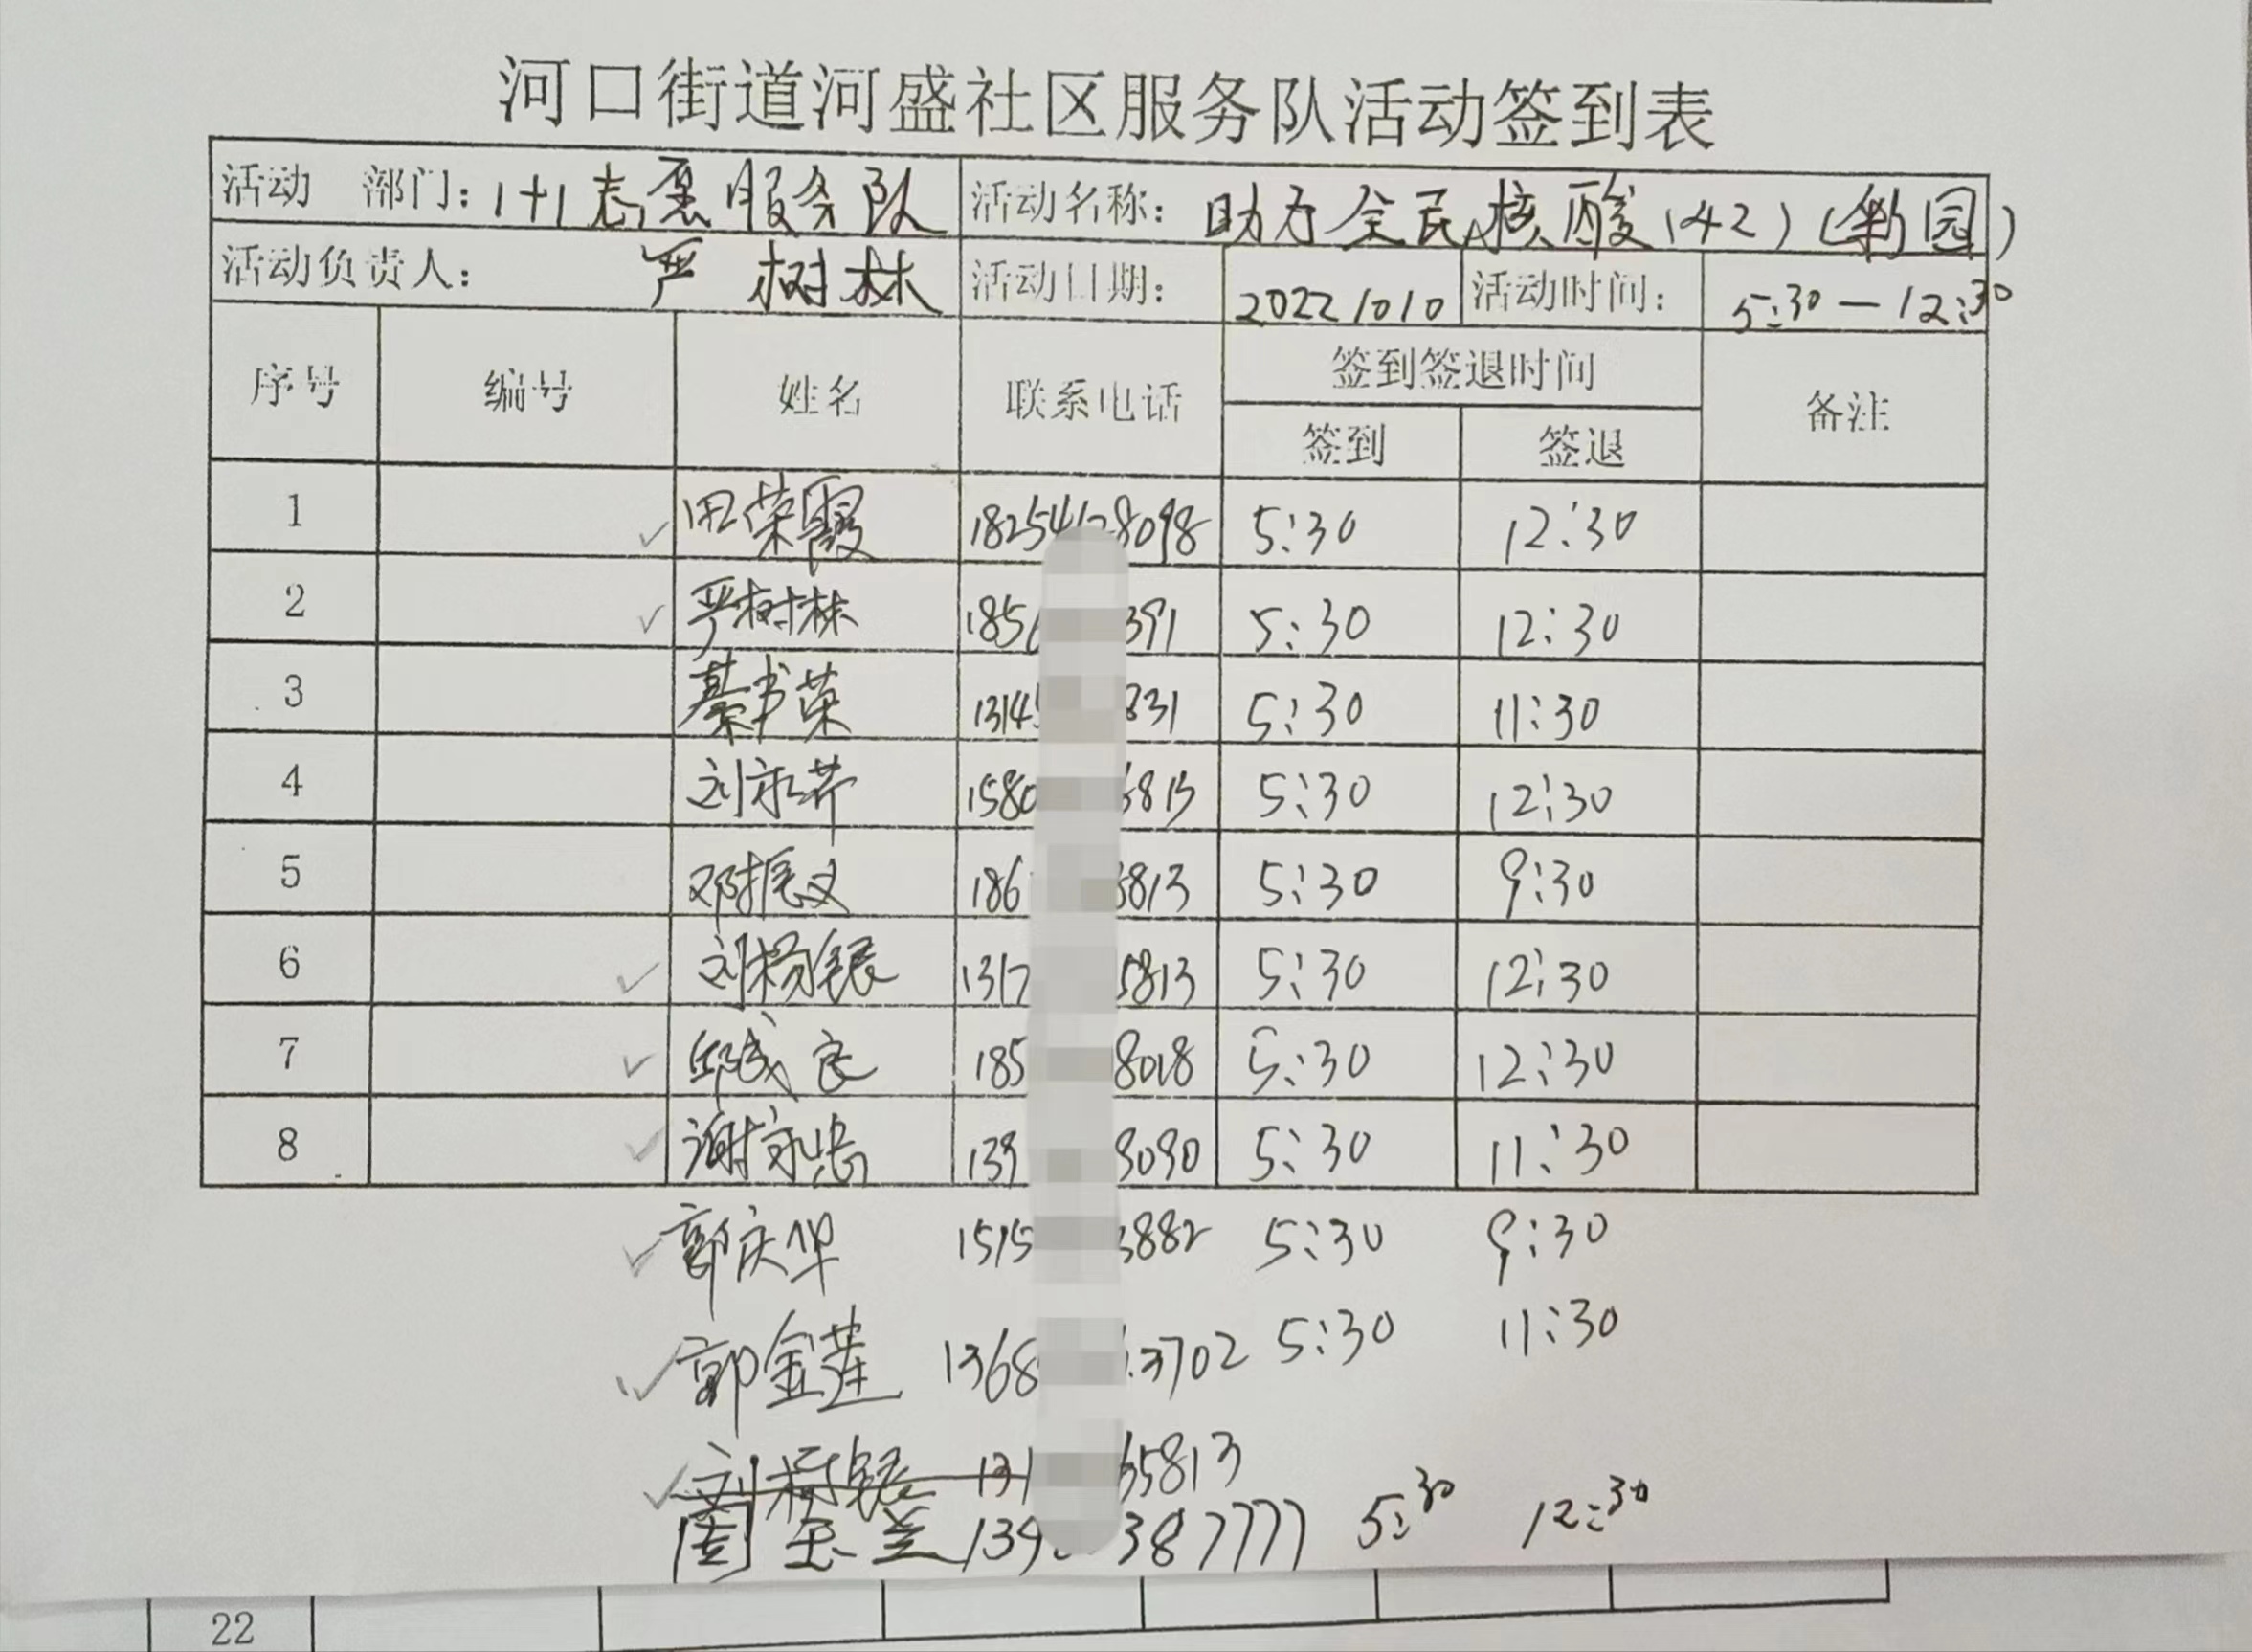 河口街道河盛社区服务队活动签到表
活动 部门：1+1志愿服务队 活动名称：助力全民核酸(42)(梨园)
活动负责人：严树林 活动日期：20221010 活动时间：5:30—12:30
序号 编号 姓名 联系电话 签到签退时间 备注
签到 签退
1 田荣霞 182541 8098 5:30 12:30
2 严树林 185 391 5:30 12:30
3 綦书荣 1314 831 5:30 11:30
4 刘永芹 1580 6813 5:30 12:30
5 邓振文 186 3813 5:30 9:30
6 刘杨银 1317 5813 5:30 12:30
7 邱成良 185 8018 5:30 12:30
8 谢家忠 139 8080 5:30 11:30
郭庆华 1515 3882 5:30 9:30
郭金莲 1368 3702 5:30 11:30
刘杨银 131 65813
周玉兰 139 387777 5:30 12:30
22